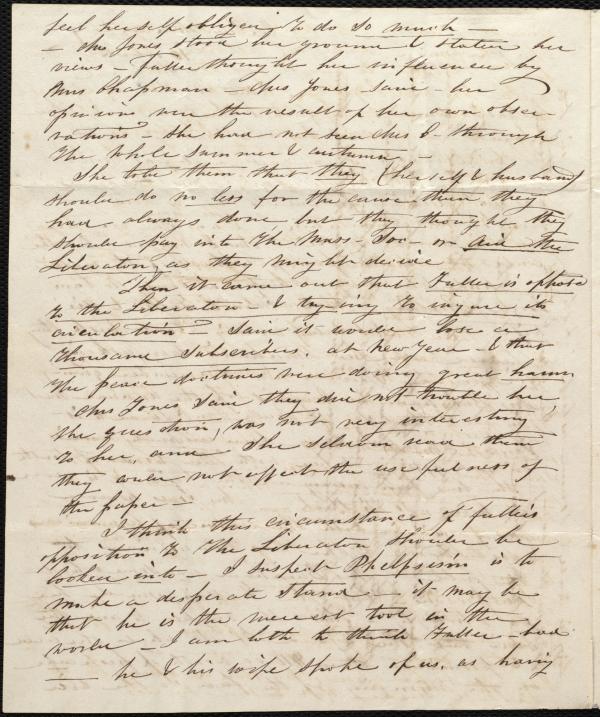 feel herself obliged to do so much —
— Mrs Jones stood her ground & stated her
views — Fuller thought her influenced by
Mrs Chapman — Mrs Jones said — her
opinions were the result of her own obser-
vations — She had not seen Mrs C — through
the whole summer & autumn —
She told them that they (herself & husband)
should do no less for the cause than they
had always done but they thought they
should pay into the Mass. Soc — or aid the
Liberator, as they might decide
Then it came out that Fuller is opposed
to the Liberator — & trying to injure its
circulation — Said it would lose a
thousand subscribers, at New Year — & that
the peace doctrines were doing great harm
Mrs Jones said they did not trouble her,
the question, was not very interesting
to her, and she seldom read them
they could not affect the usefulness of
the paper —
I think this circumstance of Fuller's
opposition to the Liberator should be
looked into — I suspect Phelpsism is to
make a desperate stand — it may be
that he is the merest tool in the
world — I am loth to think Fuller — bad
— he & his wife spoke of us, as having